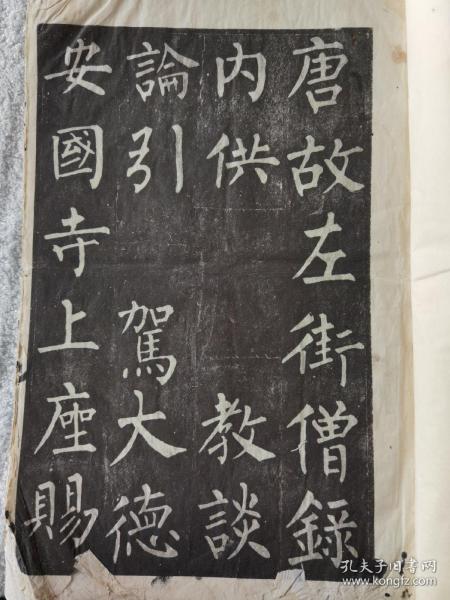 唐故左街僧錄
内供 教談
論引 駕大德
安國寺上座賜
孔夫子旧书网
www.kongfz.com